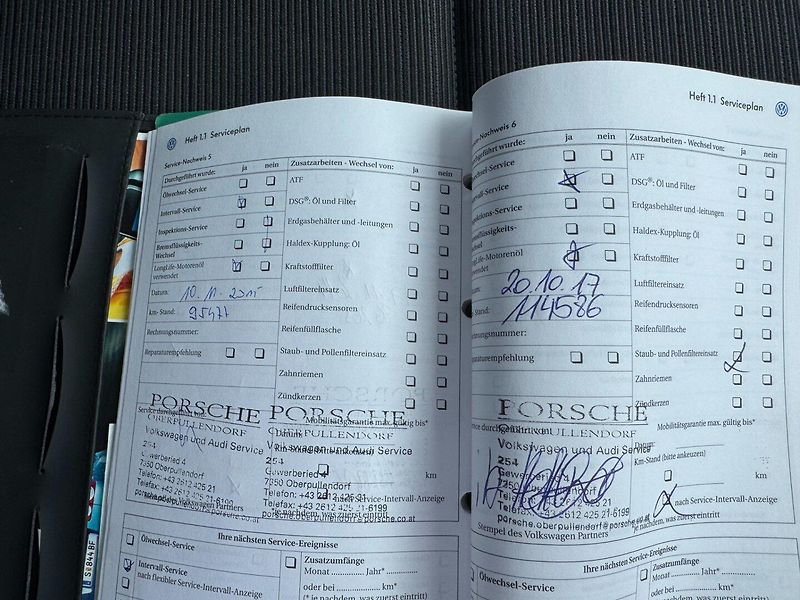 Heft 1.1 Serviceplan
Service-Nachweis 5
Durchgeführt wurde: ja nein
Ölwechsel-Service
Intervall-Service
Inspektions-Service
Bremsflüssigkeits-
Wechsel
LongLife-Motorenöl
verwendet
Datum: 10. 11. 2015
km- Stand: 95477
Rechnungsnummer:
Reparaturempfehlung
Zusatzarbeiten - Wechsel von: ja nein
ATF
DSG®: Öl und Filter
Erdgasbehälter und -leitungen
Haldex-Kupplung: Öl
Kraftstofffilter
Luftfiltereinsatz
Reifendrucksensoren
Reifenfüllflasche
Staub- und Pollenfiltereinsatz
Zahnriemen
Zündkerzen
Mobilitätsgarantie max. gültig bis*
PORSCHE PORSCHE
OBERPULLENDORF OBERPULLENDORF
Volkswagen und Audi Service Volkswagen und Audi Service
254 254
Gewerberied 4 Gewerberied 4
7350 Oberpullendorf 7350 Oberpullendorf
Telefon: +43 2612 425 21 Telefon: +43 2612 425 21
Telefax: +43 2612 425 21-6199
porsche.oberpullendorf@porsche.co.at
km
nach Service-Intervall-Anzeige
je nachdem, was zuerst eintritt
Ihre nächsten Service-Ereignisse
Ölwechsel-Service
Intervall-Service
nach flexibler Service-Intervall-Anzeige
Zusatzumfänge
Monat Jahr*
oder bei km*
(* je nachdem, was zuerst eintritt)
S 844 BF
Heft 1.1 Serviceplan
Service-Nachweis 6
Durchgeführt wurde: ja nein
wechsel-Service
Intervall-Service
Inspektions-Service
Bremsflüssigkeits-
Wechsel
LongLife-Motorenöl
verwendet
20.10.17
Stand: 114586
Rechnungsnummer:
Reparaturempfehlung
Zusatzarbeiten - Wechsel von: ja nein
ATF
DSG®: Öl und Filter
Erdgasbehälter und -leitungen
Haldex-Kupplung: Öl
Kraftstofffilter
Luftfiltereinsatz
Reifendrucksensoren
Reifenfüllflasche
Staub- und Pollenfiltereinsatz
Zahnriemen
Zündkerzen
Mobilitätsgarantie max. gültig bis*
Datum:
Km-Stand (bitte ankreuzen)
km
nach Service-Intervall-Anzeige
*je nachdem, was zuerst eintritt
PORSCHE
OBERPULLENDORF
Volkswagen und Audi Service
254
Gewerberied 4
7350 Oberpullendorf
Telefon: +43 2612 425 21
porsche.oberpullendorf@porsche.co.at
Stempel des Volkswagen Partners
Ihre nächsten Service-Ereignisse
Ölwechsel-Service
Zusatzumfänge
Monat Jahr*
oder bei km*